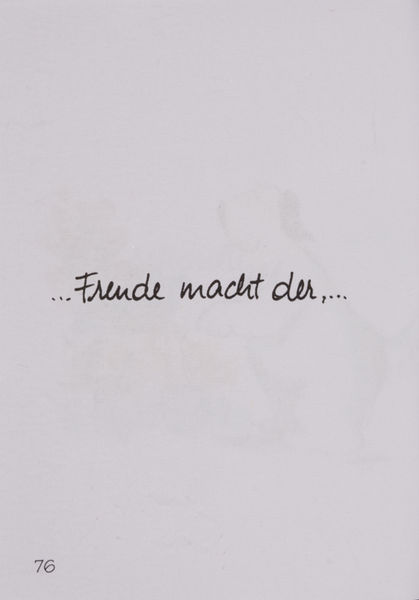 ...Freude macht der,...
76